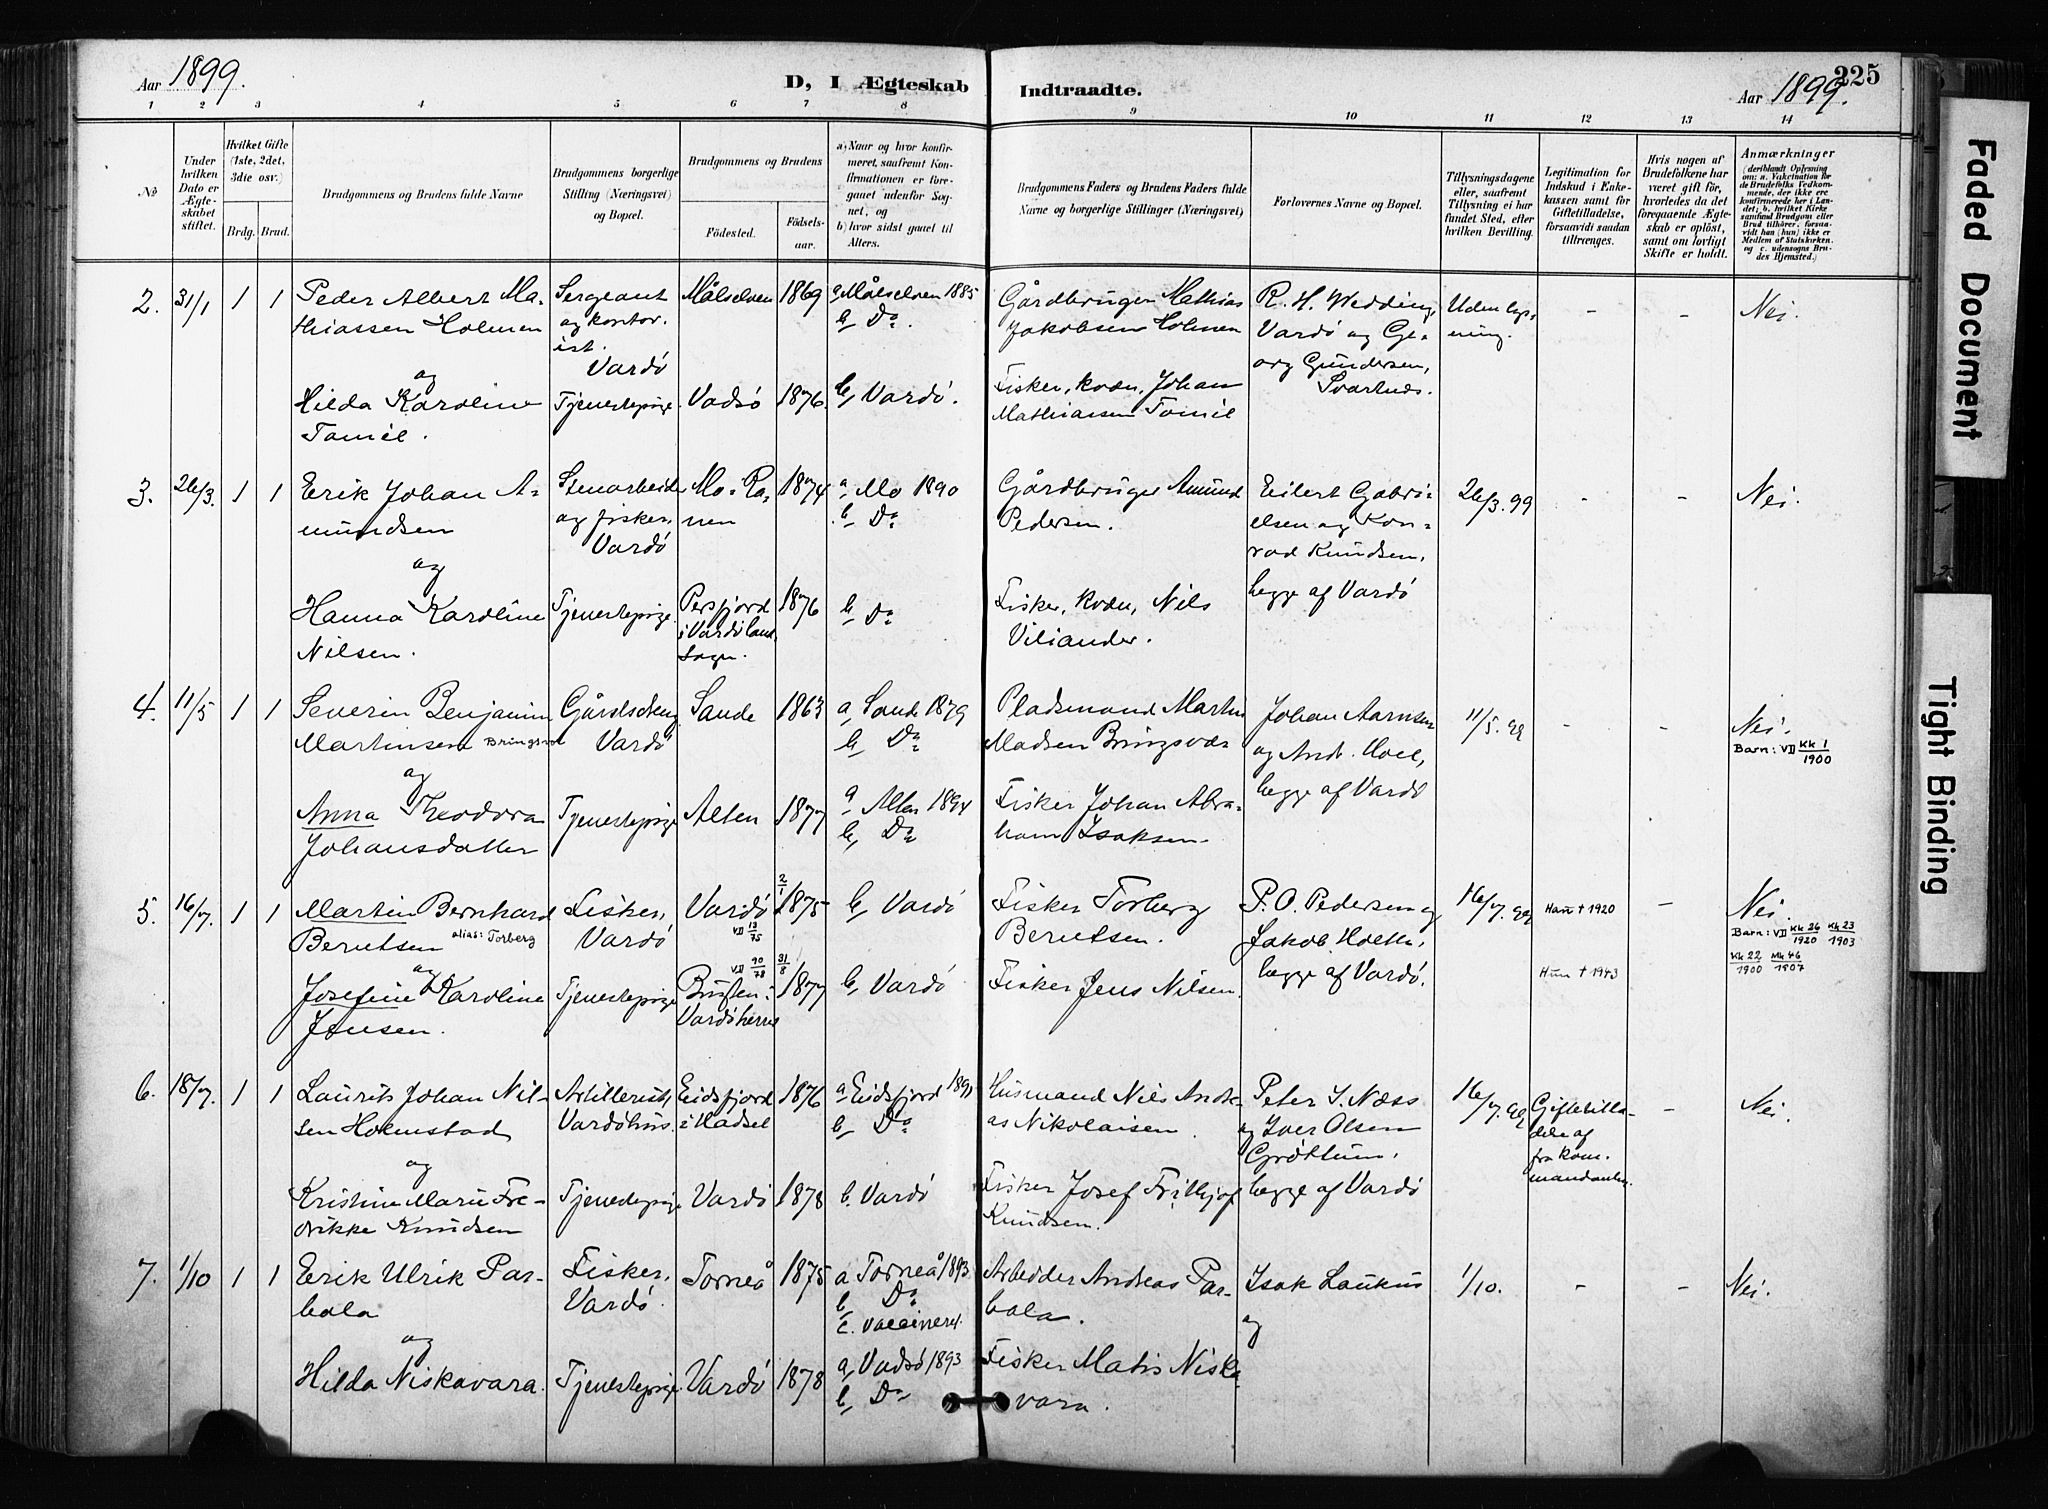 Aar 1899. D, I Ægteskab Indtraadte. Aar 1899. 225
1 2 3 4 5 6 7 8 9 10 11 12 13 14
No
Under hvilken Dato er Ægteskabet stiftet.
Hvilket Gifte (1ste, 2det, 3die osv.)
Brdg. Brud.
Brudgommens og Brudens fulde Navne
Brudgommens borgerlige Stilling (Næringsvei) og Bopæl.
Brudgommens og Brudens
Fødested. Fødselsaar.
a) Naar og hvor konfirmeret, saafremt Konfirmationen er foregaaet udenfor Sognet, og
b) hvor sidst gaaet til Alters.
Brudgommens Faders og Brudens Faders fulde Navne og borgerlige Stillinger (Næringsvei)
Forlovernes Navne og Bopæl.
Tillysningsdagene eller, saafremt Tillysning ei har fundet Sted, efter hvilken Bevilling.
Legitimation for Indskud i Enkekassen samt for Giftetilladelse, forsaavidt saadan tiltrænges.
Hvis nogen af Brudefolkene har været gift før, hvorledes da det foregaaende Ægteskab er opløst, samt om lovligt Skifte er holdt.
Anmærkninger
(deriblandt Oplysning om: a. Vakcination for de Brudefolks Vedkommende, der ikke ere konfirmerede her i Landet; b. hvilket Kirkesamfund Brudgom eller Brud tilhører, forsaavidt han (hun) ikke er Medlem af Statskirken, og c. udensogns Brudes Hjemsted.)
2. 31/1 1 1
Peder Albert Ma-
thiassen Holmen
og
Hilda Karoline
Tomiel.
Sergeant
og kontor.
ist.
Vardö
Tjenestepige.
Målselven 1869
Vadsö 1876.
a, Målselven 1885
b, Do.
b, Vardö.
Gårdbruger Mathias
Jakobsen Holmen
Fisker, kvæn, Johan
Mathiassen Tomiel
R. H. Wedding,
Vardö og Ge-
org Gundersen,
Svartnes.
Uden lys-
ning.
- - Nei.
3. 26/3. 1 1
Erik Johan A-
mundsen
og
Hanna Karoline
Nilsen.
Stenarbeider
og fisker,
Vardö
Tjenestepige.
Mo. Ra-
nen
1874
Persfjord
i Vardö land
sogn.
1876
a, Mo 1890
b, Do
b, Do
Gårdbruger Amund
Pedersen.
Fisker, kvæn, Nils
Viliander.
Eilert Gabri-
elsen og Kon-
rad Knudsen,
begge af Vardö
26/3. 99
- - Nei.
4. 11/5 1 1
Severin Benjamin
Martinsen Bringsvol
og
Anna Theodora
Johansdatter
Gårdsdreng
Vardö
Tjenestepige
Sande 1863
Alten 1877
a, Sande 1879
b, Do
a, Alten 1894
b, Do
Pladsmand Martin
Madsen Bringsvor
Fisker Johan Abra-
ham Isaksen.
Johan Aarnsen
og And. Hoel,
begge af Vardö
11/5. 99
- - Nei.
Barn: VD Kk 1/1900
5. 16/7. 1 1
Martin Bernhard
Berntsen alias: Torberg
og
Josefine Karoline
Jensen.
Fisker,
Vardö
Tjenestepige
Vardö
VD 13/75
2/1 1875
VD 90/78
Busten i
Vardöherred
31/8 1877
b, Vardö
b, Vardö
Fisker Torberg
Berntsen.
Fisker Jens Nilsen.
P. O. Pedersen og
Jakob Holte,
begge af Vardö.
16/7. 99
Ham † 1920
Hun † 1943
- Nei.
Barn: VD Kk 26/1920 Kk 23/1903
Kk 22/1900 Mk 46/1907
6. 18/7. 1 1
Laurits Johan Nil-
sen Holmstad
og
Kristine Marie Fre-
drikke Knudsen
Artillerist,
Vardöhus.
Tjenestepige
Eidsfjord
i Hadsel
1876
Vardö 1878
a, Eidsfjord 1891
b, Do
b. Vardö
Husmand Nils Andre-
as Nikolaisen.
Fisker Josef Frithjof
Knudsen.
Peter I. Næss
og Iver Olsen
Gröttum,
begge af Vardö
16/7. 99
Giftetilla-
delse af
fra Kom-
mandanten.
- Nei.
7. 1/10 1 1
Erik Ulrik Par-
bola
og
Hilda Niskavara.
Fisker,
Vardö.
Tjenestepige
Torneå 1875
Vardö 1878
a Torneå 1893.
b, Do
c. vaccineret.
a, Vadsö 1893
b, Do
Arbeider Andreas Par-
bola.
Fisker Matis Niska-
vara.
Isak Laukus
og
1/10.
- - Nei.
Faded Document
Tight Binding